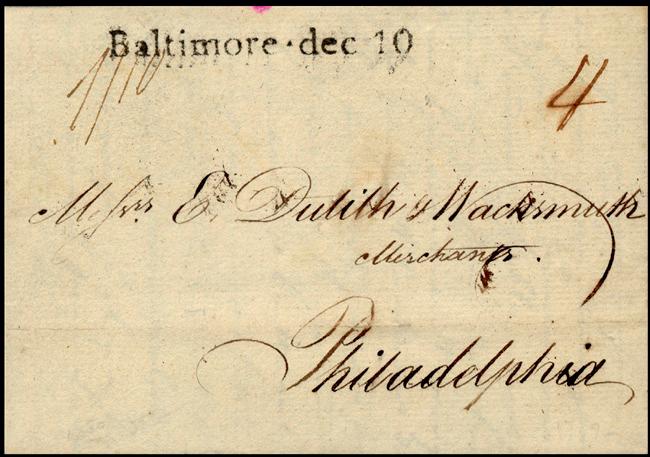 Baltimore · dec 10
4
Messrs. E. Dutilh & Wachsmuth
Merchants.
Philadelphia